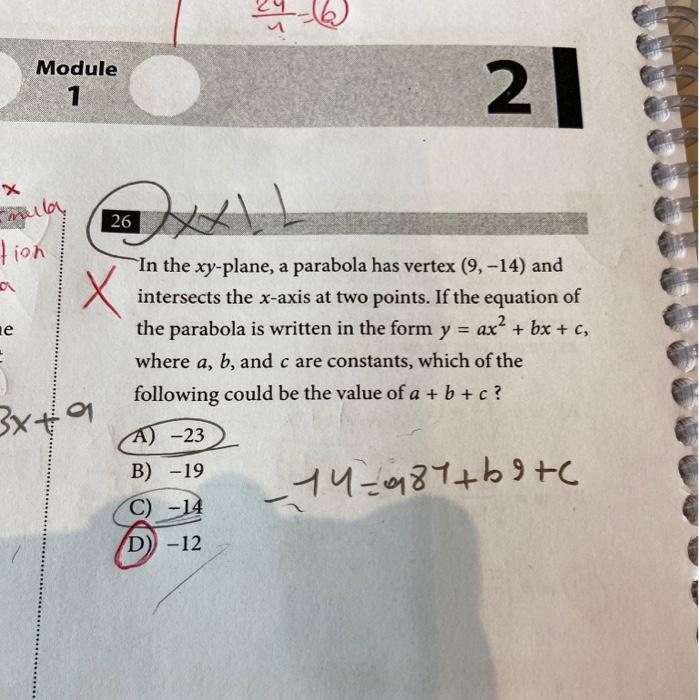 24/4 = 6
Module
1
2
x
tion
26
In the xy-plane, a parabola has vertex (9, −14) and
intersects the x-axis at two points. If the equation of
the parabola is written in the form y = ax² + bx + c,
where a, b, and c are constants, which of the
following could be the value of a + b + c ?
3x+9
A) −23
B) −19
C) −14
D) −12
-14=a81+b9+c